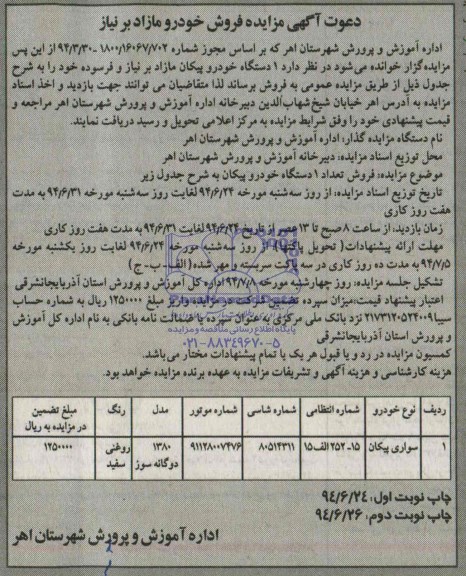 دعوت آگهی مزایده فروش خودرو مازاد بر نیاز
اداره آموزش و پرورش شهرستان اهر که بر اساس مجوز شماره ۱۸۰۰/۱۶۰۶۷/۷۰۲ -۹۴/۳/۳۰ از این پس
مزایده‌گزار خوانده می‌شود در نظر دارد ۱ دستگاه خودرو پیکان مازاد بر نیاز و فرسوده خود را به شرح
جدول ذیل از طریق مزایده عمومی به فروش برساند لذا متقاضیان می توانند جهت بازدید و اخذ اسناد
مزایده به آدرس اهر خیابان شیخ شهاب‌الدین دبیرخانه اداره آموزش و پرورش شهرستان اهر مراجعه و
قیمت پیشنهادی خود را وفق شرایط مزایده به مرکز اعلامی تحویل و رسید دریافت نمایند.
نام دستگاه مزایده گذار: اداره آموزش و پرورش شهرستان اهر
محل توزیع اسناد مزایده: دبیرخانه آموزش و پرورش شهرستان اهر
موضوع مزایده: فروش تعداد ۱ دستگاه خودرو پیکان به شرح جدول زیر
تاریخ توزیع اسناد مزایده: از روز سه‌شنبه مورخه ۹۴/۶/۲۴ لغایت روز سه‌شنبه مورخه ۹۴/۶/۳۱ به مدت
هفت روز کاری
زمان بازدید: از ساعت ۸ صبح تا ۱۳ عصر از تاریخ ۹۴/۶/۲۴ لغایت ۹۴/۶/۳۱ به مدت هفت روز کاری
مهلت ارائه پیشنهادات( تحویل پاکتها): از روز سه شنبه مورخه ۹۴/۶/۲۴ لغایت روز یکشنبه مورخه
۹۴/۷/۵ به مدت ده روز کاری در سه پاکت سربسته و مهر شده (الف - ب - ج)
تشکیل جلسه مزایده: روز چهارشنبه مورخه ۹۴/۷/۸ اداره کل آموزش و پرورش استان آذربایجانشرقی
اعتبار پیشنهاد قیمت: میزان سپرده تضمین شرکت در مزایده واریز مبلغ ۱۲۵۰۰۰۰ ریال به شماره حساب
سیبا ۲۱۷۳۱۲۰۵۲۴۰۰۹ نزد بانک ملی مرکزی به عنوان سپرده یا ضمانت نامه بانکی به نام اداره کل آموزش
و پرورش استان آذربایجانشرقی
پایگاه اطلاع رسانی مناقصه و مزایده
۰۲۱-۸۸۳۴۹۶۷۰-۵
کمسیون مزایده در رد و یا قبول هر یک یا تمام پیشنهادات مختار می‌باشد.
هزینه کارشناسی و هزینه آگهی و تشریفات مزایده به عهده برنده مزایده خواهد بود.
ردیف نوع خودرو شماره انتظامی شماره شاسی شماره موتور مدل رنگ مبلغ تضمین در مزایده به ریال
۱ سواری پیکان ۱۵- ۲۵۲ الف ۱۵ ۸۰۵۱۴۳۱۱ ۹۱۱۲۸۰۰۷۴۷۶ ۱۳۸۰ دوگانه سوز روغنی سفید ۱۲۵۰۰۰۰
چاپ نوبت اول: ۹۴/۶/۲۴
چاپ نوبت دوم: ۹۴/۶/۲۶
اداره آموزش و پرورش شهرستان اهر